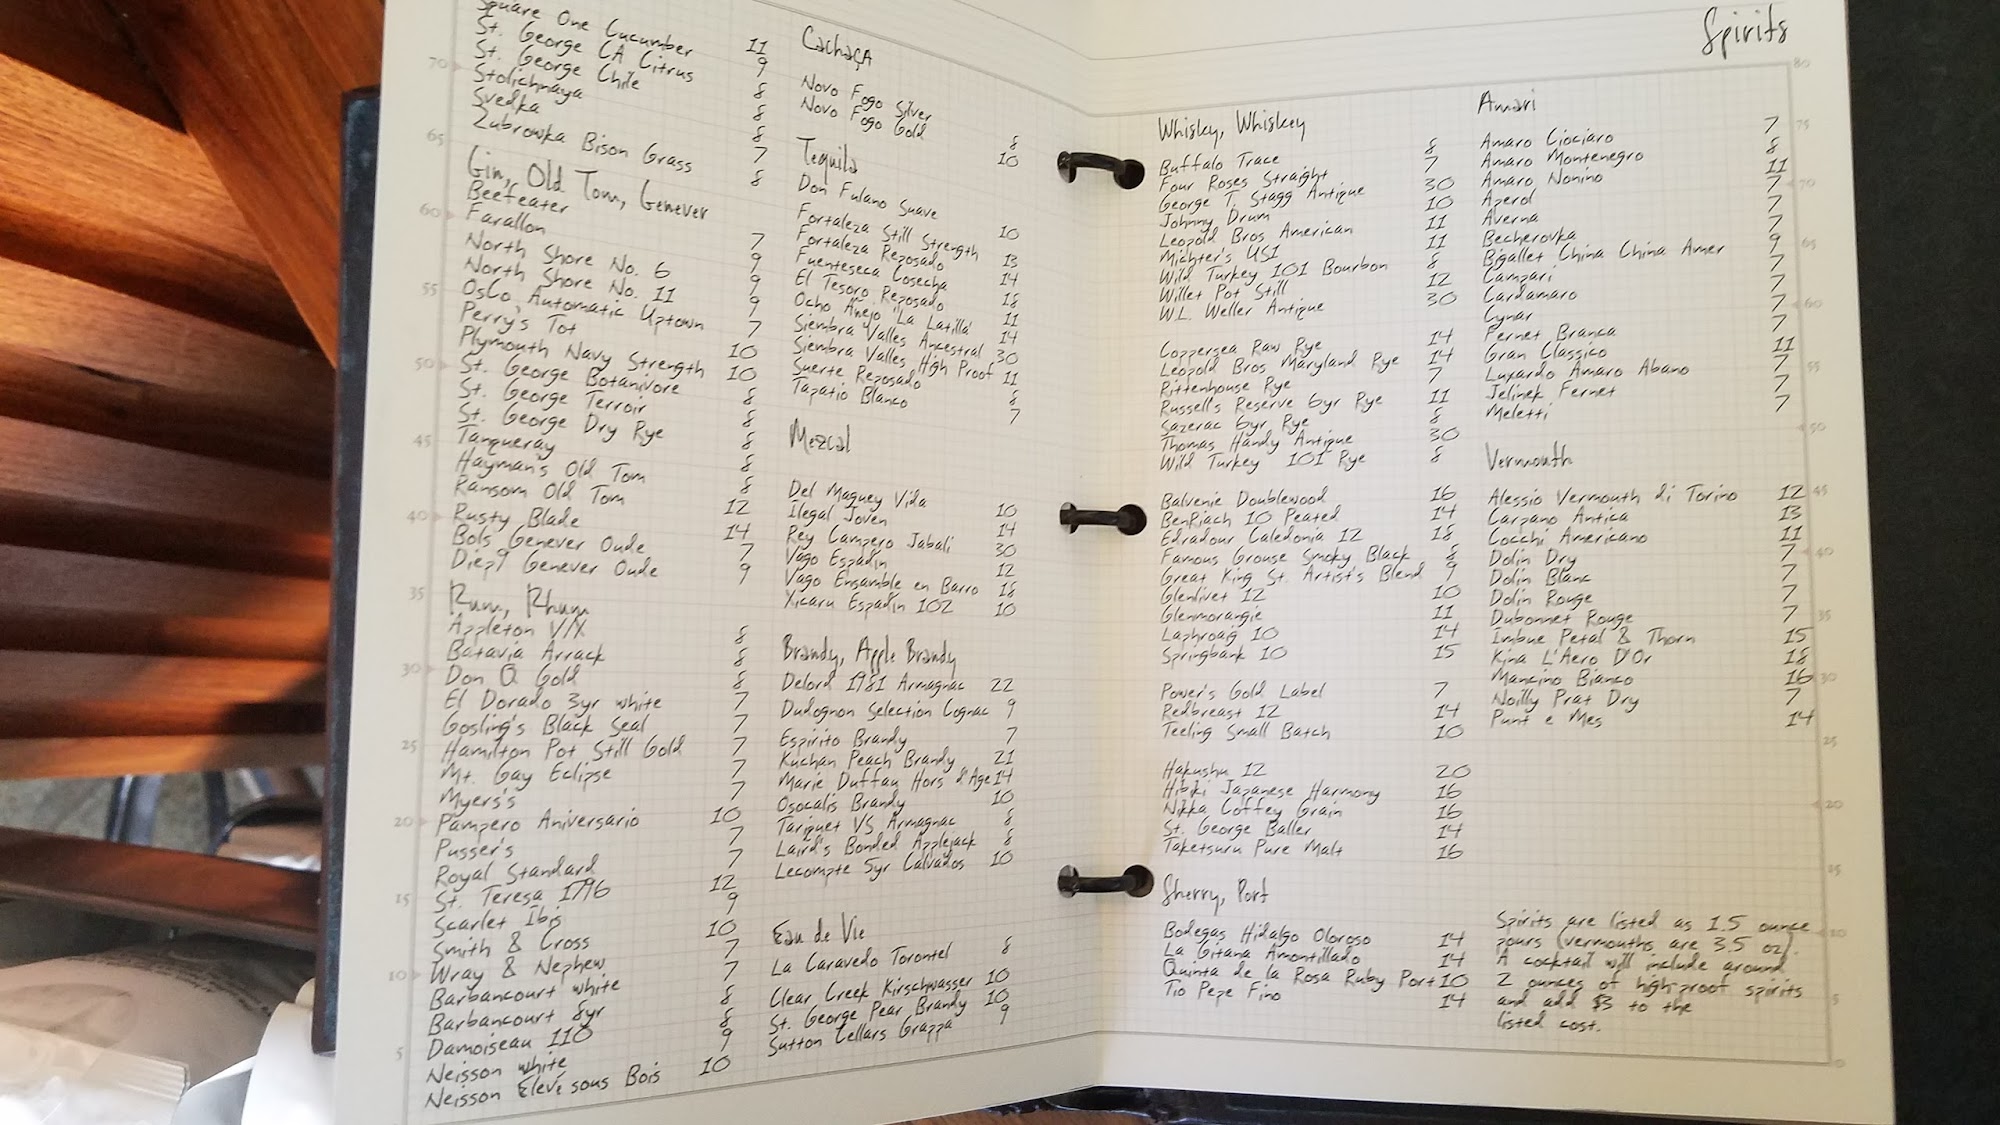 11
Square One Cucumber 9
St. George CA Citrus 8
St. George Chile 8
Stolichnaya 8
Svedka 7
Zubrowka Bison Grass 8
Gin, Old Tom, Genever
Beefeater 7
Farallon 9
North Shore No. 6 9
North Shore No. 11 9
OsCo, Automatic Uptown 7
Perry's Tot 10
Plymouth Navy Strength 10
St. George Botanivore 8
St. George Terroir 8
St. George Dry Rye 8
Tanqueray 8
Hayman's Old Tom 8
Ransom Old Tom 12
Rusty Blade 14
Bols Genever Oude 7
Diep9 Genever Oude 9
Rum, Rhum
Appleton V/X 8
Batavia Arrack 8
Don Q Gold 8
El Dorado 3yr white 7
Gosling's Black Seal 7
Hamilton Pot Still Gold 7
Mt. Gay Eclipse 7
Myers's 7
Pampero Aniversario 10
Pusser's 7
Royal Standard 7
St. Teresa 1796 12
Scarlet Ibis 9
Smith & Cross 10
Wray & Nephew 7
Barbancourt white 7
Barbancourt 8yr 8
Damoiseau 110 8
Neisson white 9
Neisson Élevé sous Bois 10
Cachaça
Novo Fogo Silver 8
Novo Fogo Gold 10
Tequila
Don Fulano Suave 10
Fortaleza Still Strength 13
Fortaleza Reposado 14
Fuenteseca Cosecha 18
El Tesoro Reposado 11
Ocho Añejo 'La Latilla' 14
Siembra Valles Ancestral 30
Siembra Valles High Proof 11
Suerte Reposado 8
Tapatio Blanco 7
Mezcal
Del Maguey Vida 10
Ilegal Joven 14
Rey Campero Jabali 30
Vago Espadin 12
Vago Ensamble en Barro 18
Xicaru Espadin 102 10
Brandy, Apple Brandy
Delord 1981 Armagnac 22
Dudognon Selection Cognac 9
Espirito Brandy 7
Kuchan Peach Brandy 21
Marie Duffau Hors d'Age 14
Osocalis Brandy 10
Tariquet VS Armagnac 8
Laird's Bonded Applejack 8
Lecompte 5yr Calvados 10
Eau de Vie
La Caravedo Torontel 8
Clear Creek Kirschwasser 10
St. George Pear Brandy 10
Sutton Cellars Grappa 9
70
65
60
55
50
45
40
35
30
25
20
15
10
5
Spirits
Whisky, Whiskey
Buffalo Trace 8
Four Roses Straight 7
George T. Stagg Antique 30
Johnny Drum 10
Leopold Bros American 11
Michter's US1 11
Wild Turkey 101 Bourbon 8
Willet Pot Still 12
W.L. Weller Antique 30
Coppersea Raw Rye 14
Leopold Bros Maryland Rye 14
Rittenhouse Rye 7
Russell's Reserve 6yr Rye 11
Sazerac 6yr Rye 8
Thomas Handy Antique 30
Wild Turkey 101 Rye 8
Balvenie Doublewood 16
BenRiach 10 Peated 14
Edradour Caledonia 12 18
Famous Grouse Smoky Black 8
Great King St. Artist's Blend 9
Glenlivet 12 10
Glenmorangie 11
Laphroaig 10 14
Springbank 10 15
Power's Gold Label 7
Redbreast 12 14
Teeling Small Batch 10
Hakushu 12 20
Hibiki Japanese Harmony 16
Nikka Coffey Grain 16
St. George Baller 14
Taketsuru Pure Malt 16
Sherry, Port
Bodegas Hidalgo Oloroso 14
La Gitana Amontillado 14
Quinta de la Rosa Ruby Port 10
Tio Pepe Fino 14
Amari
Amaro Ciociaro 7
Amaro Montenegro 8
Amaro Nonino 11
Aperol 7
Averna 7
Becherovka 7
Bigallet China China Amer 9
Campari 7
Cardamaro 7
Cynar 7
Fernet Branca 7
Gran Classico 11
Luxardo Amaro Abano 7
Jelinek Fernet 7
Meletti 7
Vermouth
Alessio Vermouth di Torino 12
Carpano Antica 13
Cocchi Americano 11
Dolin Dry 7
Dolin Blanc 7
Dolin Rouge 7
Dubonnet Rouge 7
Imbue Petal & Thorn 15
Kina L'Aero D'Or 18
Mancino Bianco 16
Noilly Prat Dry 7
Punt e Mes 14
Spirits are listed as 1.5 ounce
pours (vermouths are 3.5 oz).
A cocktail will include around
2 ounces of high-proof spirits
and add $3 to the
listed cost.
80
75
70
65
60
55
50
45
40
35
30
25
20
15
10
5
0